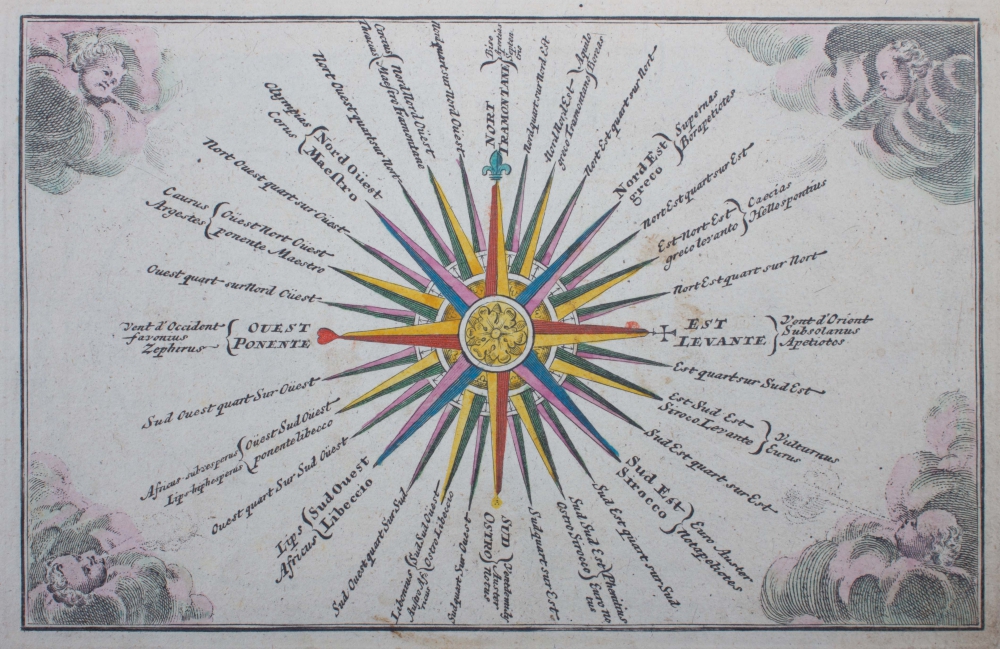 NORT
TRAMONTANE
Bise
Nord quart sur Nord Est
Nord Nord Est
greco Tramontana
Aquilo
Boreas
Nort Est quart sur Nort
Nord Est
greco
Supernas
Borapeliotes
Nort Est quart sur Est
Est Nort Est
greco levanto
Caecias
Hellespontius
Nort Est quart sur Nort
EST
LEVANTE
Vent d'Orient
Subsolanus
Apeliotes
Est quart sur Sud Est
Est Sud Est
Siroco Levante
Vulturnus
Eurus
Sud Est quart sur Est
Sud Est
Sirocco
Euro Auster
Notapeliotes
Sud Est quart sur Sud
Sud Sud Est
Ostro Sirocco
Phenitius
Euro No
tus
Sud quart sur Est
SUD
OSTRO
Vent de midy
Auster
notus
Sud quart Sur Ouest
Sud Sud Ouest
Ostro Libeccio
Libonotus
Sud Ouest quart Sur Sud
Sud Ouest
Libeccio
Lips
Africus
Ouest quart Sur Sud Ouest
Ouest Sud Ouest
ponente libecco
Africus subvesperus
Sud Ouest quart Sur Oüest
OUEST
PONENTE
Vent d'Occident
favonius
Zephirus
Ouest quart sur Nord Oüest
Oüest Nort Oüest
ponente Maestro
Caurus
Argestes
Nort Ouest quart sur Ouest
Nord Oüest
Mestro
Olympias
Corus
Nort Ouest quart sur Nort
Nord Nord Oüest
Maestro Tramontana
Circius
Thracias
Nord quart sur Nord Oüest